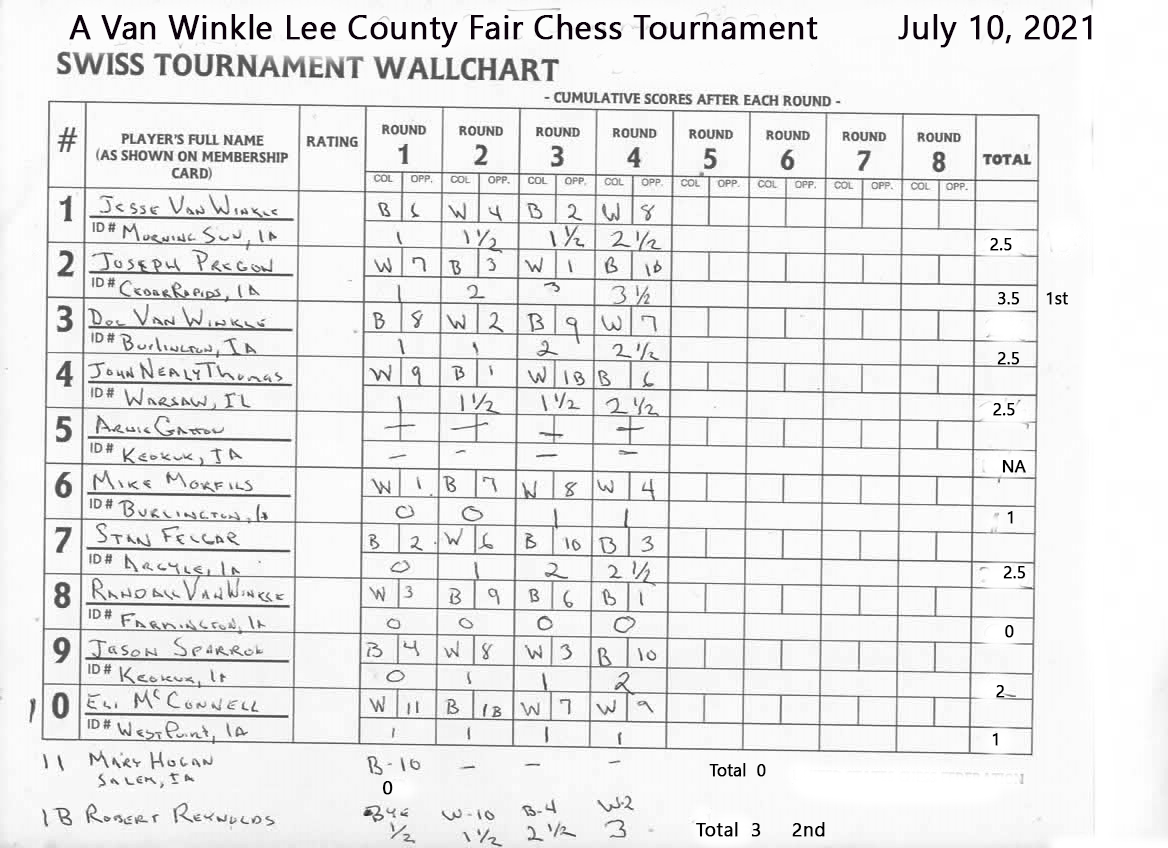 A Van Winkle Lee County Fair Chess Tournament July 10, 2021
SWISS TOURNAMENT WALLCHART
- CUMULATIVE SCORES AFTER EACH ROUND -
# PLAYER'S FULL NAME (AS SHOWN ON MEMBERSHIP CARD) RATING ROUND 1 ROUND 2 ROUND 3 ROUND 4 ROUND 5 ROUND 6 ROUND 7 ROUND 8 TOTAL
COL OPP. COL OPP. COL OPP. COL OPP. COL OPP. COL OPP. COL OPP. COL OPP.
1 Jesse Van Winkle B 6 W 4 B 2 W 8
ID# Morning Sun, IA 1 1½ 1½ 2½ 2.5
2 Joseph Pregon W 7 B 3 W 1 B 1B
ID# Cedar Rapids, IA 1 2 3 3½ 3.5 1st
3 Doc Van Winkle B 8 W 2 B 9 W 7
ID# Burlington, IA 1 1 2 2½ 2.5
4 John Nealy Thomas W 9 B 1 W 1B B 6
ID# Warsaw, IL 1 1½ 1½ 2½ 2.5
5 Arnie Gatton
ID# Keokuk, IA - - - - NA
6 Mike Morfils W 1 B 7 W 8 W 4
ID# Burlington, IA 0 0 1 1 1
7 Stan Felgar B 2 W 6 B 10 B 3
ID# Argyle, IA 0 1 2 2½ 2.5
8 Randall Van Winkle W 3 B 9 B 6 B 1
ID# Farmington, IA 0 0 0 0 0
9 Jason Sparrow B 4 W 8 W 3 B 10
ID# Keokuk, IA 0 1 1 2 2
10 Eli McConnell W 11 B 1B W 7 W 9
ID# West Point, IA 1 1 1 1 1
11 Mary Hogan B-10 - - - Total 0
Salem, IA 0
1B Robert Reynolds Bye W-10 B-4 W-2
½ 1½ 2½ 3 Total 3 2nd